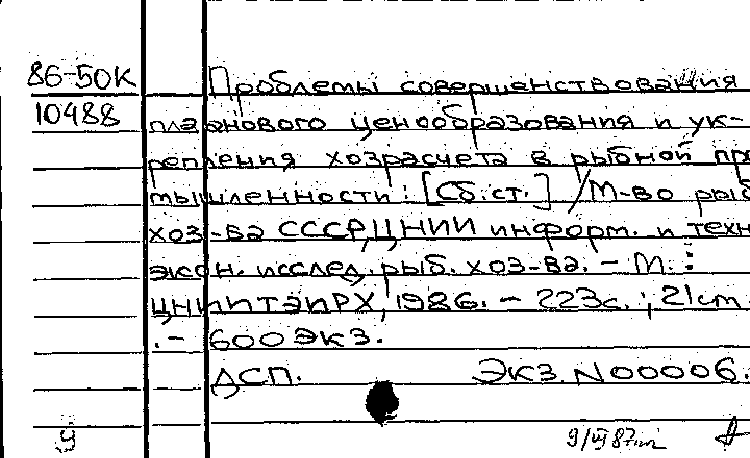 86-50К Проблемы совершенствования
10488 планового ценообразования и ук-
репления хозрасчета в рыбной про
мышленности: [Сб.ст.] /М-во рыб
хоз-ва СССР, ЦНИИ информ. и техн
экон. исслед. рыб. хоз-ва. - М. :
ЦНИИТЭИРХ, 1986. - 223с. ; 21 cm
. - 600 экз.
ДСП. Экз. N 00006.
9 9/VI 87